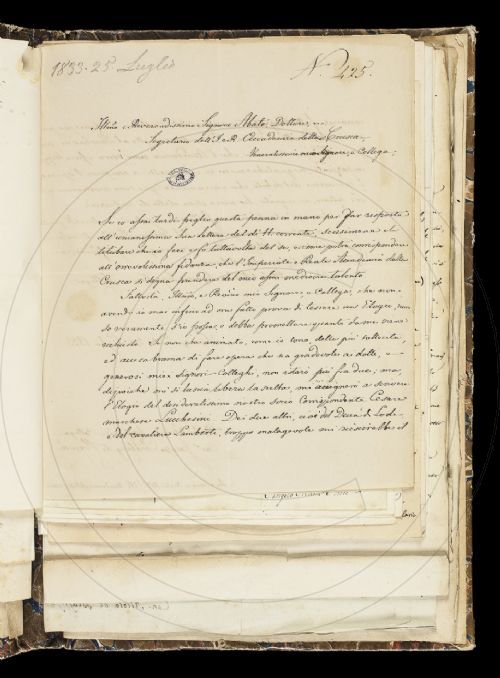 1833-25 Luglio
N.° 425.
Illmo e Reverendissimo Signore Abate Dottore,
Segretario dell'I. e R. Accademia della Crusca,
Veneratissimo mio Signore, e Collega;
Se io assai tardi piglio questa penna in mano per far risposta
all'umanissima Sua lettera del dì 11. corrente,
titubare che io fare sulla del se, e come potrei corrispondere
all'onorevolissima fidanza, che l'Imperiale e Reale Accademia della
Crusca si degna prendere del mio assai mediocre talento.
Tuttavia, Illmo, e Revmo mio Signore, e Collega, che non
avendo io mai infino ad ora fatto prova di tessere un' Elogio, non
so veramente, s'io possa, o debba promettere quanto da me viene
richiesto. Se non che animato, come io sono, dalla più sollecita
ed accesa brama di fare opera che sia gradevole a dotti, e
generosi miei Signori Colleghi, non istarò più fra due, ma
dipoichè mi si lascia libera la scelta, mi accingerò a scrivere
l'Elogio del desideratissimo nostro Socio Corrispondente Cesare
marchese Lucchesini. Dei due altri, cioè del Duca di Lodi
e del cavaliere Lamberti, troppo malagevole mi riuscirebbe il